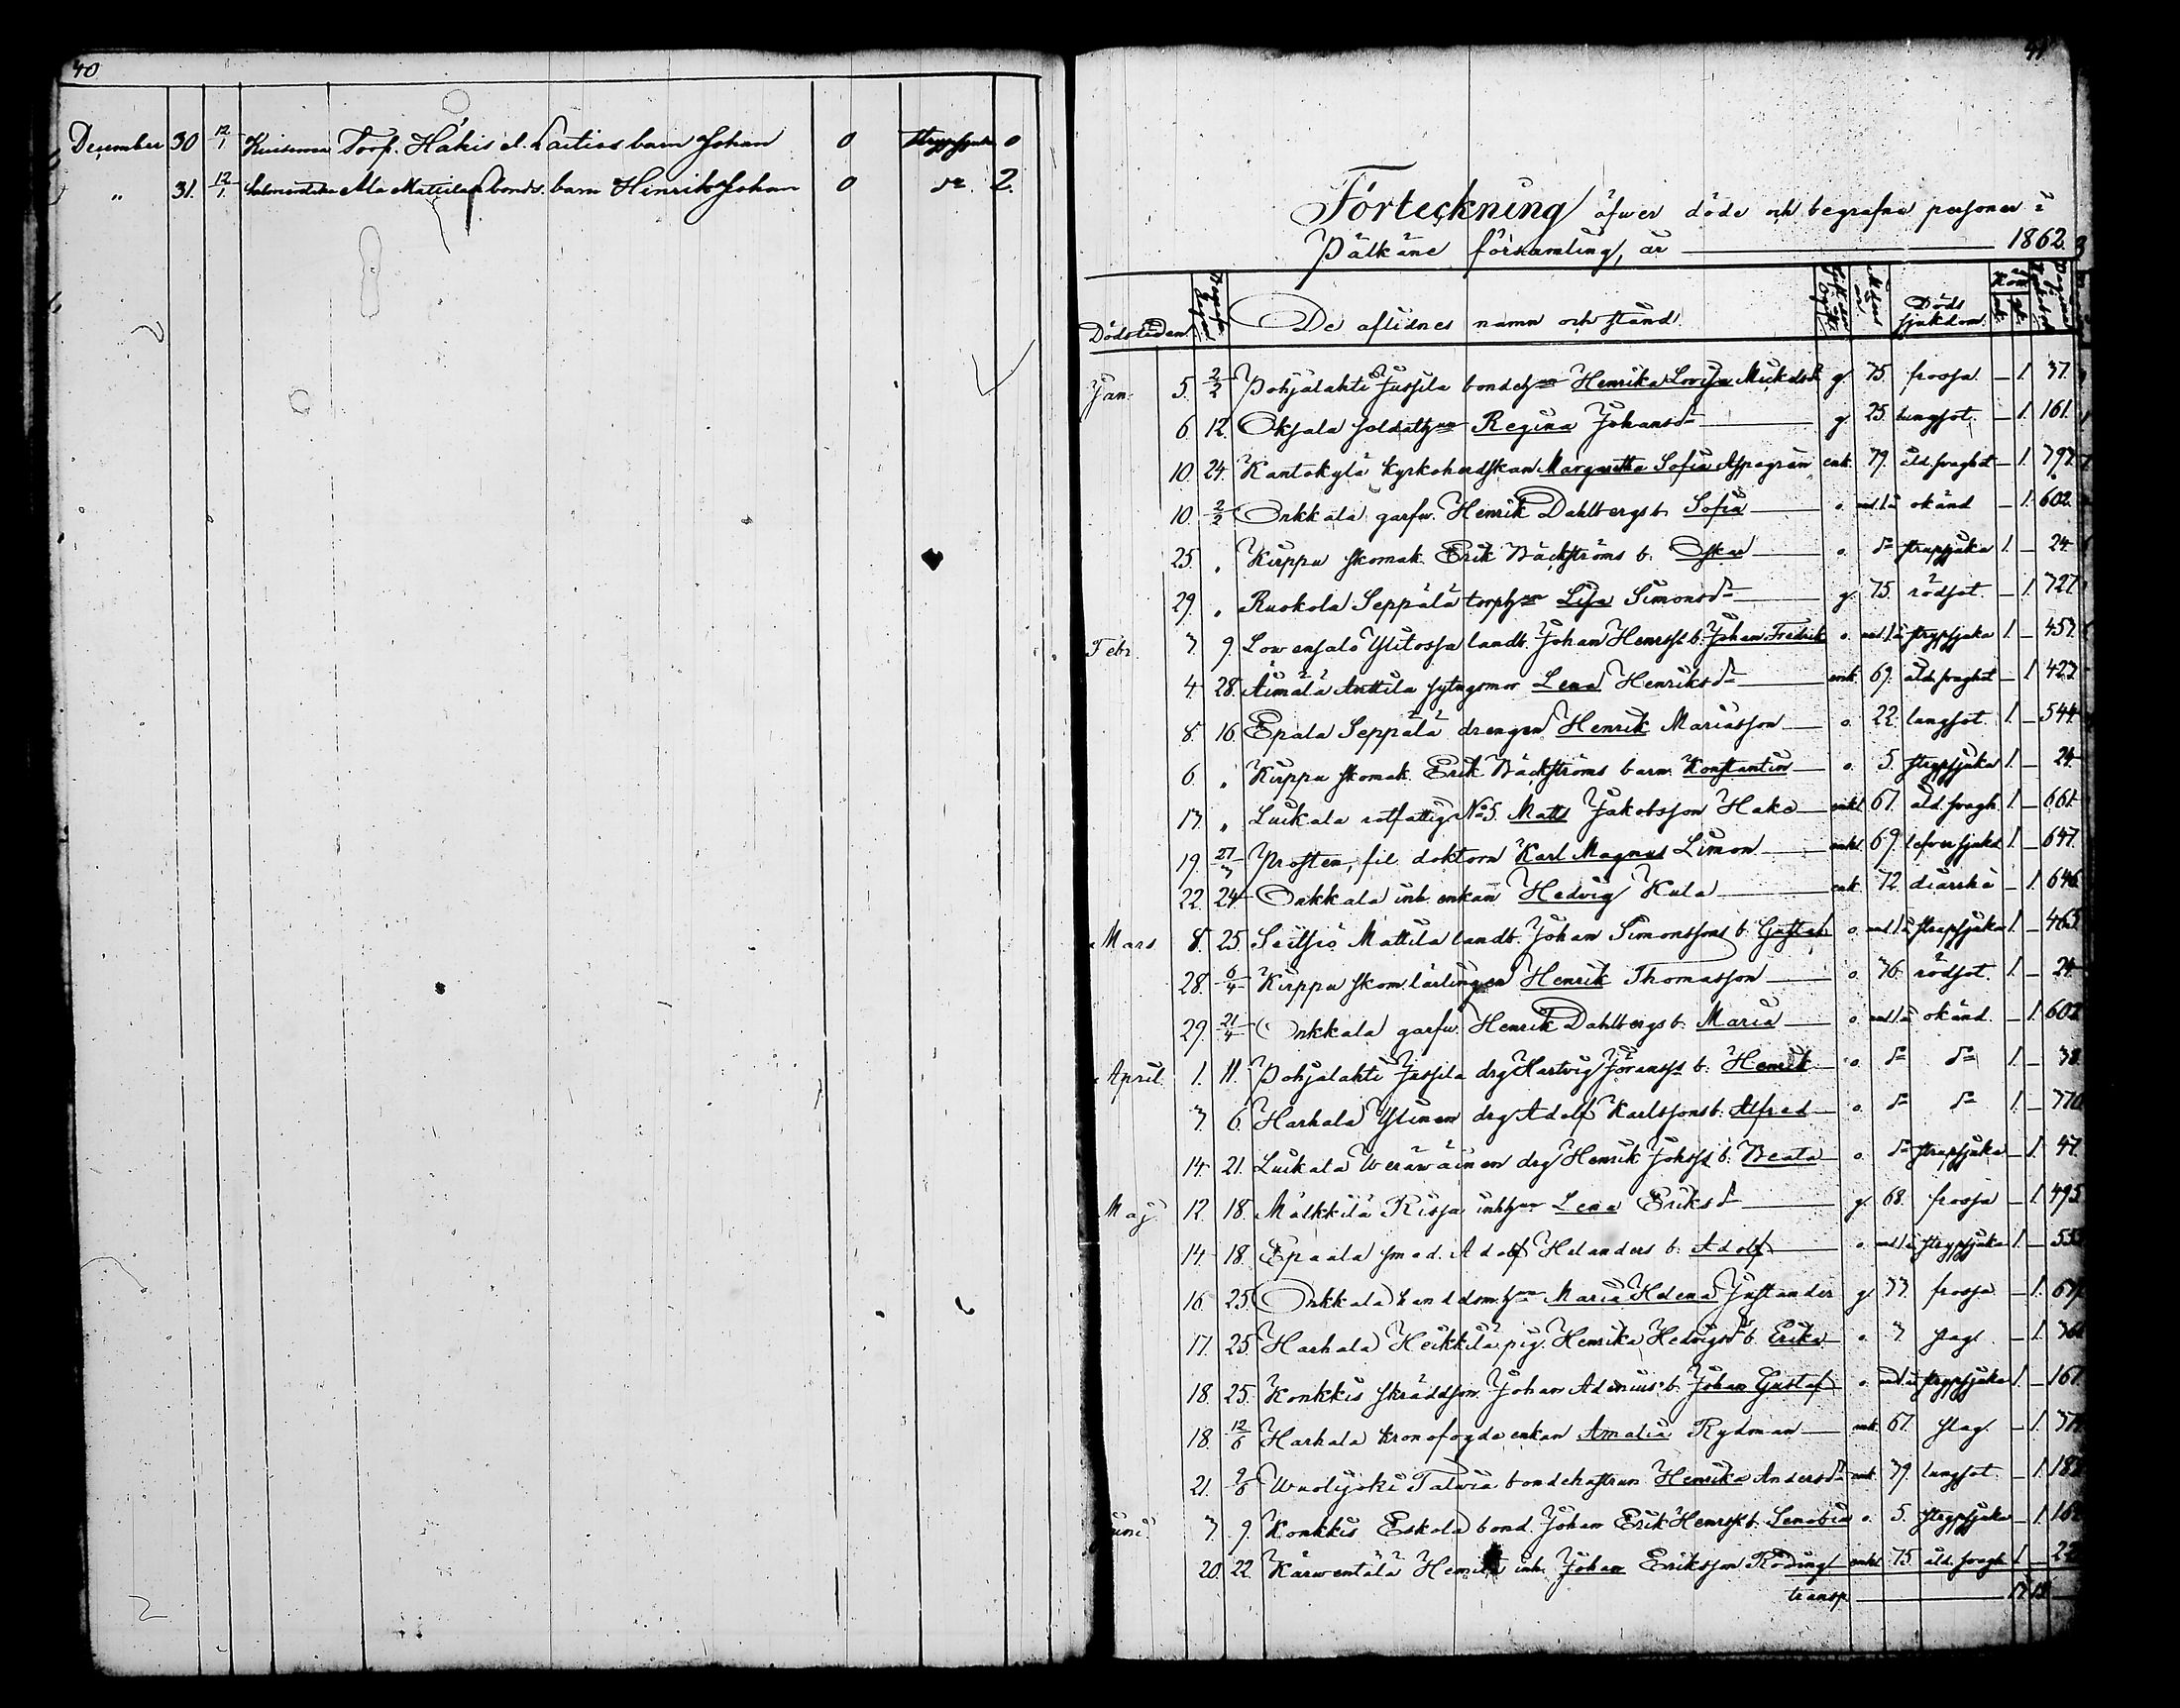 40
December 30 12/1 Torp. Hakis barn Johan 0 strypsjuka 0
" 31. 12/1 Ala Mattila bonds. barn Henrik Johan 0 d:o 2.
41
Förteckning öfwer döde och begrafne personer i
Pälkäne församling, år 1862.
Dödstiden De aflidnes namn och stånd Döds sjukdom Kön
Jan. 5. 2/2 Pohjalahti Jussila bondeh:n Henrika Lovisa Mickelsd:r g. 75 frossa — 1. 37.
6. 12. Oksala soldath:n Regina Johansd:r g. 25. lungsot. — 1. 161.
10. 24. Kantokylä kyrkoherdskan Margaretha Sofia Aspegrén enk. 79. åld.svaghet — 1. 797.
10. 2/2 Onkkala garfv. Henrik Dahlbergs b. Sofia o. und.1.å okänd — 1. 602.
25. " Kirppu skomak. Erik Bäckströms b. Oskar o. d:o strypsjuka 1. — 24
29. " Ruokola Seppälä torph:n Lisa Simonsd:r g. 75. rödsot. — 1. 727.
Febr. 3. 9. Lovensalo Ylitossa landb. Johan Henrss. b. Johan Fredrik o. und.1.å strypsjuka 1. — 457.
4. 28. Äimälä Anttila sytngsmor Lena Henriksd:r enk. 69. åld.svaghet — 1 423
8. 16. Epala Seppälä drengen Henrik Mariasson o. 22. lungsot. 1. — 544
6. " Kirppu skomak. Erik Bäckströms barn Konstantin o. 5. strypsjuka 1. — 24.
13. " Luikala rotfattig No 5. Matts Jakobsson Hake enkl. 67. åld.svagh. 1. — 661.
19. 27/3 Prosten, fil. doktorn Karl Magnus Limon enkl. 69. lefversjukd. 1. — 647.
22. 24 Onkkala inh. enkan Hedvig Kula enk. 72. diarrhé — 1. 646
Mars 8. 25. Seitsis Mattila landb. Johan Simonssons b. Gustaf o. und.1.å strypsjuka 1. — 465
28. 6/4 Kirppu skom.lärlingen Henrik Thomasson o. 76. rödsot. 1. — 24
29. 21/4 Onkkala garfv. Henrik Dahlbergs b. Maria o. und.1.å okänd. — 1. 602
April. 1. 11. Pohjalahti Jussila drg Hartvig Göranss. b. Henrik o. d:o d:o 1. — 38.
3. 6. Harhala Ylinen drg Adolf Karlssons b. Alfred o. d:o d:o 1. — 770
14. 21. Luikala Weräwäinen drg Henrik Johss. b. Beata o. d:o strypsjuka — 1. 47.
Maj 12. 18. Mälkkilä Rissa inhh:n Lena Eriksd:r g. 68. frossa — 1. 495
14. 18. Epaala smed. Adolf Helanders b. Adolf o. und.1.å strypsjuka 1. —
16. 25. Onkkala handelsm.h:n Maria Helena Justander g. frossa — 1.
17. 25. Harhala Heikkilä pig. Henrika Hedvigsd:r b. Erika o. 3 slag — 1.
18. 25. Konkkis skräddson Johan Adenius b. Johan Gustaf o. und.1.å strypsjuka 1. — 167
18. 12/6 Harhala kronofogdeenkan Amalia Rydman enk. 67. slag. — 1.
21. 9/6 Wuolijoki Talvia bondehustrun Henrika Andersd:r enk. 79. lungsot. — 1.
Juni 7. 9. Konkkis Eskola bond. Johan Erik Henrss. b. Senobia o. 5. strypsjuka — 1.
20. 22. Kärwentälä Hemilä inh. Johan Eriksson Röding enkl. 75. åld.svagh. 1 —
transp.